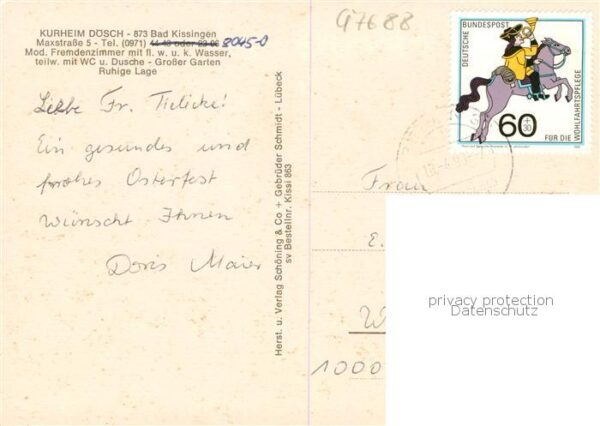 KURHEIM DÖSCH - 873 Bad Kissingen
Maxstraße 5 - Tel. (0971) 8045-0
Mod. Fremdenzimmer mit fl. w. u. k. Wasser,
teilw. mit WC u. Dusche - Großer Garten
Ruhige Lage
Liebe Fr. Tielicke!
Ein gesundes und
frohes Osterfest
wünscht Ihnen
Doris Maier
Herst. u. Verlag Schöning & Co + Gebrüder Schmidt - Lübeck
sv Bestellnr. Kissi 863
97688
DEUTSCHE BUNDESPOST
60
+30
FÜR DIE WOHLFAHRTSPFLEGE
Frau
E.
W
1000
privacy protection
Datenschutz